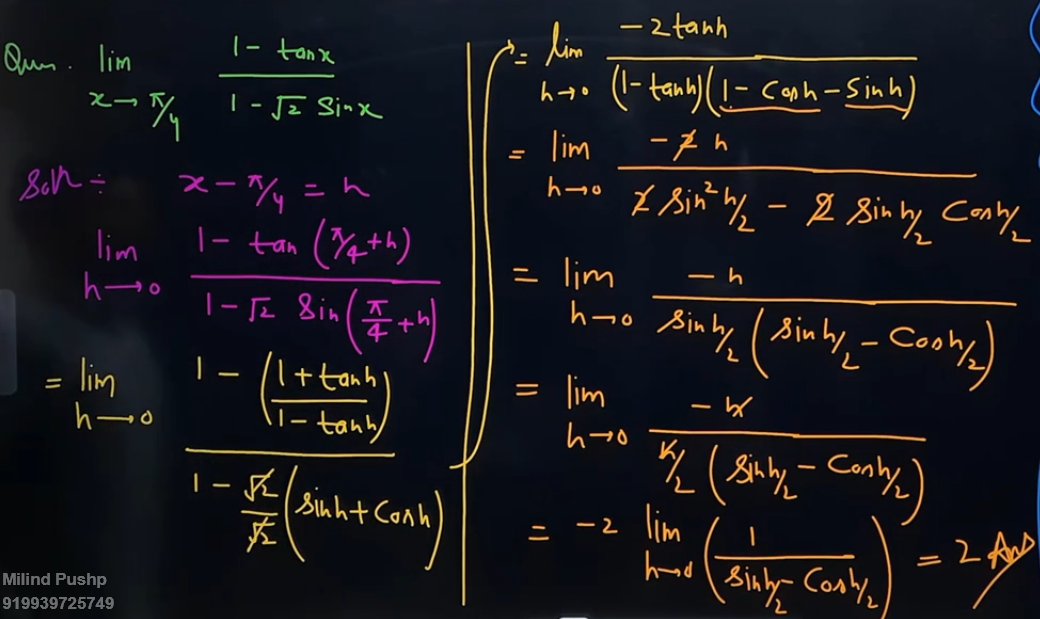 Qun. lim x→π/4 (1 - tanx)/(1 - √2 Sinx)
Soln ÷ x - π/4 = h
lim h→0 (1 - tan (π/4 + h))/(1 - √2 Sin(π/4 + h))
= lim h→0 (1 - ((1 + tanh)/(1 - tanh)))/(1 - √2/√2 (Sinh + Cosh))
= lim h→0 (-2tanh)/((1 - tanh)(1 - Cosh - Sinh))
= lim h→0 (-2 h)/(2 Sin²h/2 - 2 Sin h/2 Cos h/2)
= lim h→0 (-h)/(Sin h/2 (Sin h/2 - Cos h/2))
= lim h→0 (-h)/(h/2 (Sin h/2 - Cos h/2))
= -2 lim h→0 (1/(Sin h/2 - Cos h/2)) = 2 Ans
Milind Pushp
919939725749